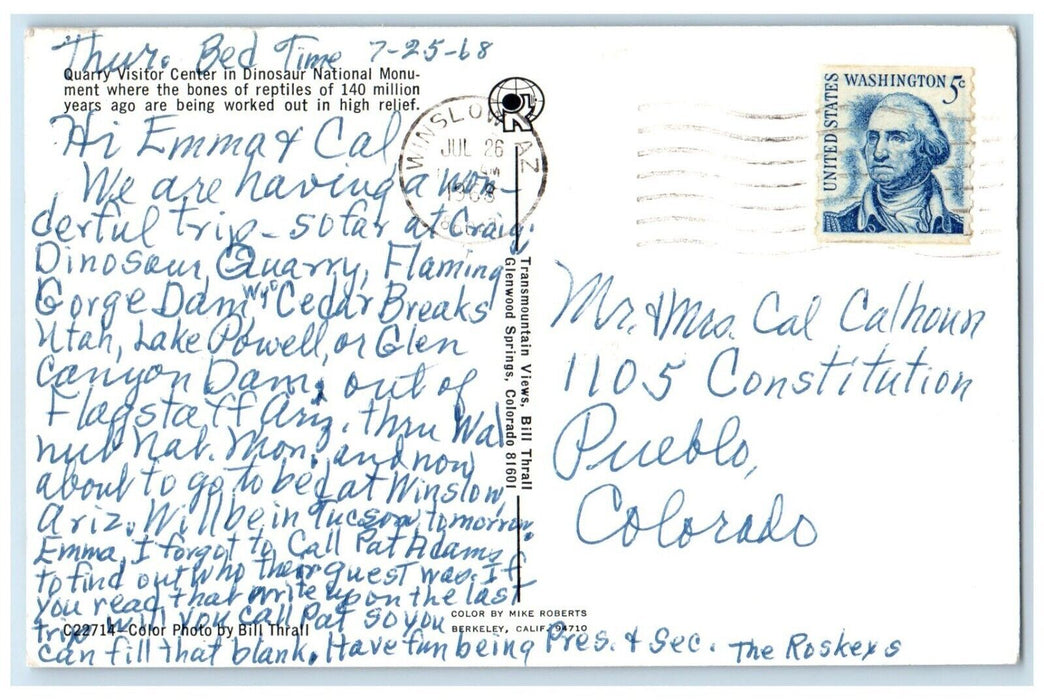 Thur. Bed Time 7-25-68
Quarry Visitor Center in Dinosaur National Monu-
ment where the bones of reptiles of 140 million
years ago are being worked out in high relief.
Hi Emma & Cal
We are having a won-
derful trip - so far at Craig,
Dinosaur Quarry, Flaming
Gorge Dam Wyo Cedar Breaks
Utah, Lake Powell, or Glen
Canyon Dam, out of
Flagstaff Ariz. thru Wal
nut Nat. Mon. and now
about to go to bed at Winslow,
Ariz. Will be in Tucson tomorrow.
Emma, I forgot to Call Pat Adams
to find out who their guest was. If
you read that write up on the last
trip will you call Pat so you
can fill that blank. Have fun being Pres. & Sec. The Roskeys
C22714—Color Photo by Bill Thrall
Transmountain Views, Bill Thrall
Glenwood Springs, Colorado 81601
COLOR BY MIKE ROBERTS
BERKELEY, CALIF. 94710
WINSLOW AZ
JUL 26
1968
UNITED STATES
WASHINGTON 5c
Mr. & Mrs. Cal Calhoun
1105 Constitution
Pueblo,
Colorado